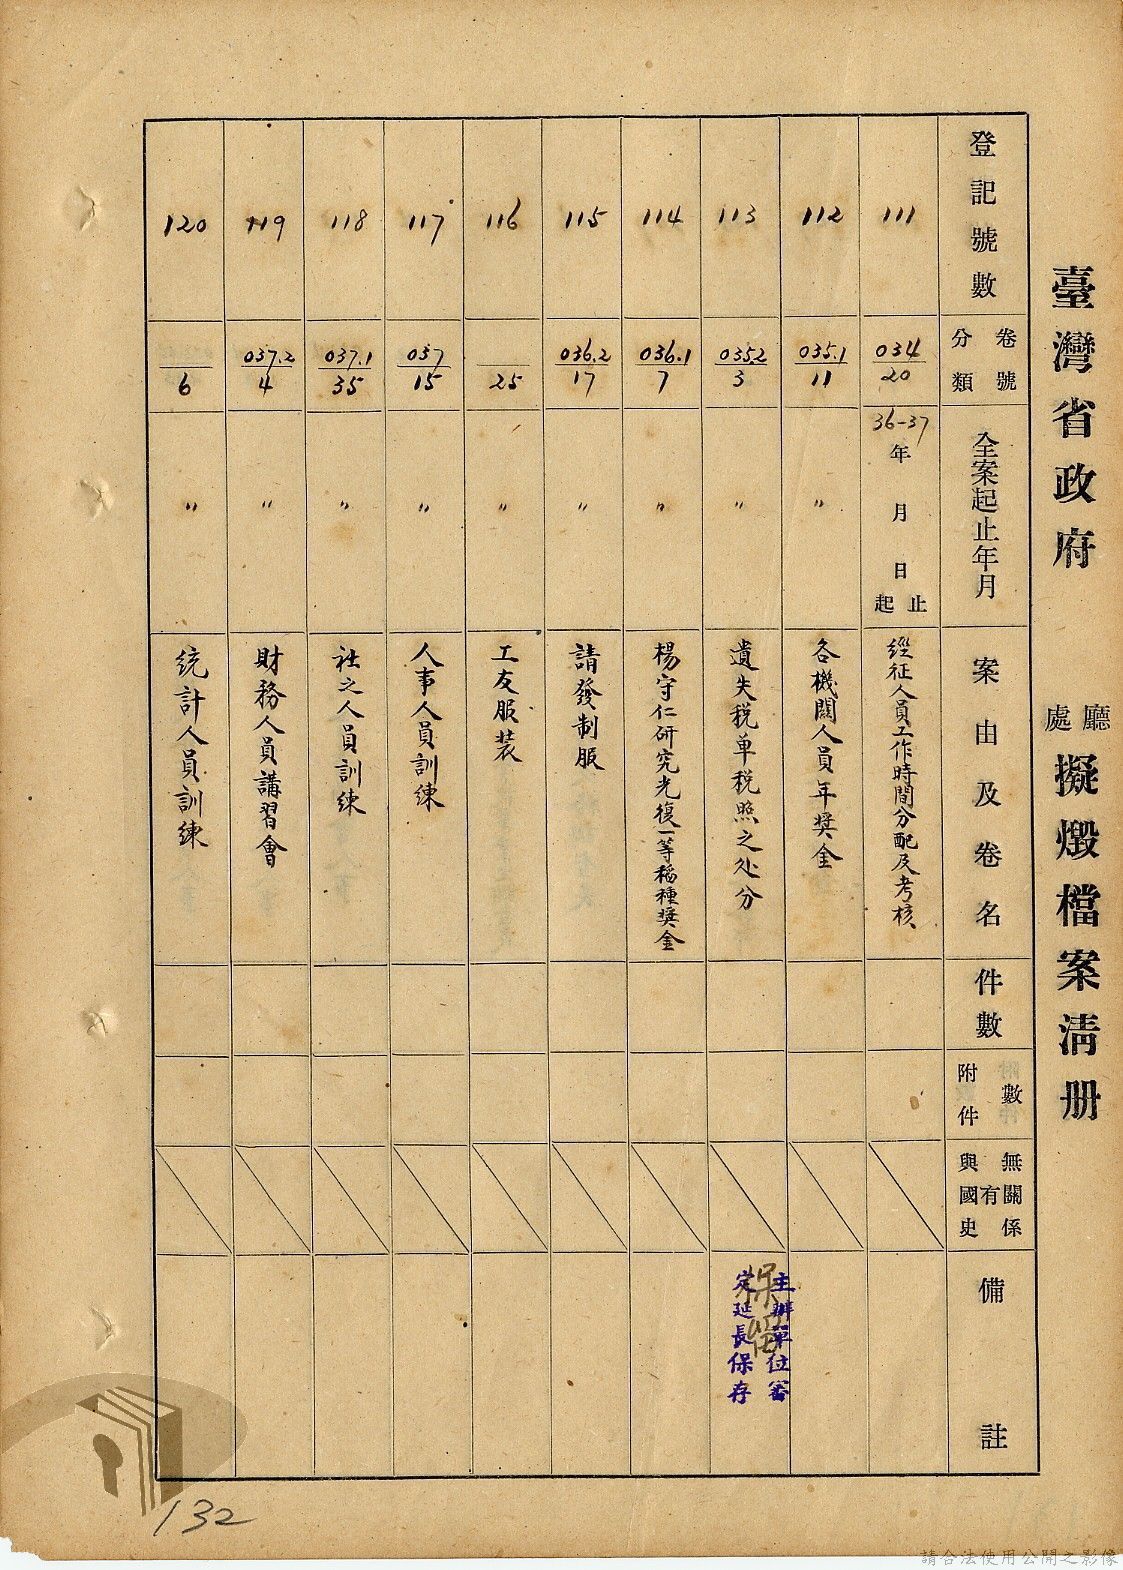 臺灣省政府 廳處 擬燬檔案清册
登記號數
分類 卷號
全案起止年月
案由及卷名
件數
附件數
與國史有無關係
備註
111
034
20
36-37
年 月 日 起 止
經征人員工作時間分配及考核
112
035.1
11
〃
各機關人員年獎金
113
035.2
3
〃
遺失税单税照之处分
保留
主辦單位審
定延長保存
114
036.1
7
〃
楊守仁研究光復一等稻種獎金
115
036.2
17
〃
請發制服
116
25
〃
工友服装
117
037
15
〃
人事人員訓練
118
037.1
35
〃
社之人員訓練
119
037.2
4
〃
財務人員講習會
120
6
〃
統計人員訓練
132
請合法使用公開之影像